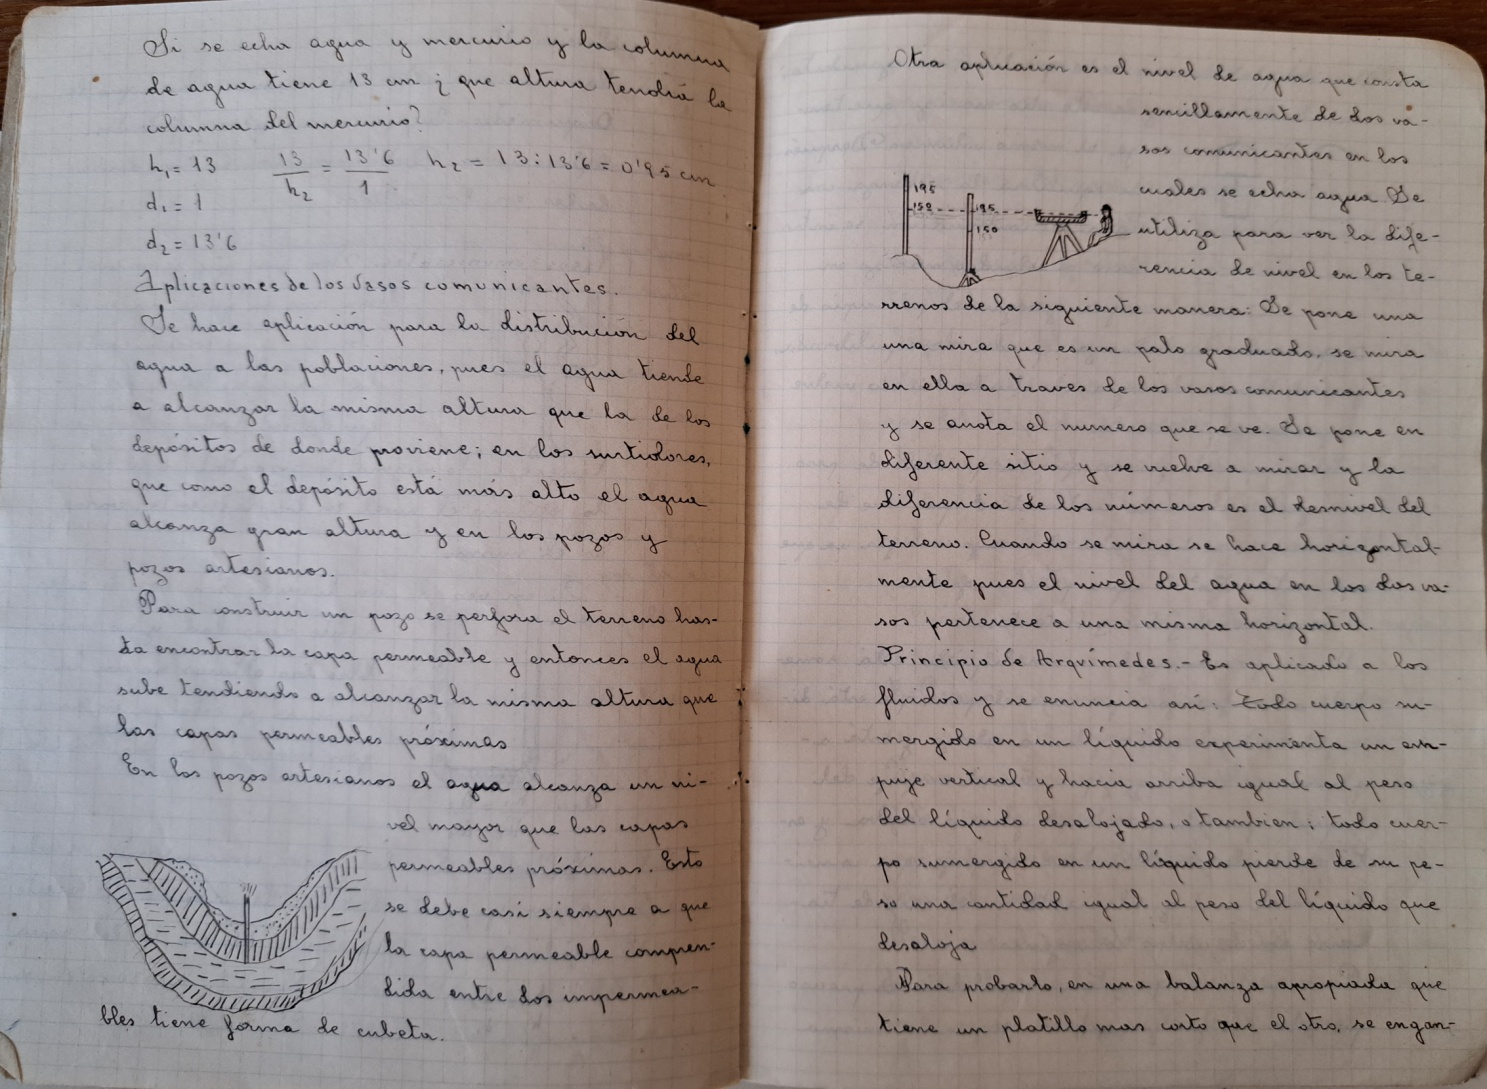 Si se echa agua y mercurio y la columna
de agua tiene 13 cm ¿ que altura tendrá la
columna del mercurio?
h₁ = 13   13/h₂ = 13'6/1   h₂ = 13:13'6 = 0'95 cm
d₁ = 1
d₂ = 13'6
Aplicaciones de los Vasos comunicantes.
Se hace aplicación para la distribución del
agua a las poblaciones, pues el agua tiende
a alcanzar la misma altura que la de los
depósitos de donde proviene; en los surtidores,
que como el depósito está más alto el agua
alcanza gran altura y en los pozos y
pozos artesianos.
Para construir un pozo se perfora el terreno has-
ta encontrar la capa permeable y entonces el agua
sube tendiendo a alcanzar la misma altura que
las capas permeables próximas
En los pozos artesianos el agua alcanza un ni-
vel mayor que las capas
permeables próximas. Esto
se debe casi siempre a que
la capa permeable compren-
dida entre dos impermea-
bles tiene forma de cubeta.
Otra aplicación es el nivel de agua que consta
sencillamente de dos va-
sos comunicantes en los
cuales se echa agua. Se
utiliza para ver la dife-
rencia de nivel en los te-
195
150
195
150
rrenos de la siguiente manera: Se pone una
una mira que es un palo graduado, se mira
en ella a traves de los vasos comunicantes
y se anota el numero que se ve. Se pone en
diferente sitio y se vuelve a mirar y la
diferencia de los números es el desnivel del
terreno. Cuando se mira se hace horizontal-
mente pues el nivel del agua en los dos va-
sos pertenece a una misma horizontal.
Principio de Arquímedes.- Es aplicado a los
fluidos y se enuncia así: Todo cuerpo su-
mergido en un líquido experimenta un em-
puje vertical y hacia arriba igual al peso
del líquido desalojado, o tambien: todo cuer-
po sumergido en un líquido pierde de su pe-
so una cantidad igual al peso del líquido que
desaloja
Para probarlo, en una balanza apropiada que
tiene un platillo mas corto que el otro, se engan-